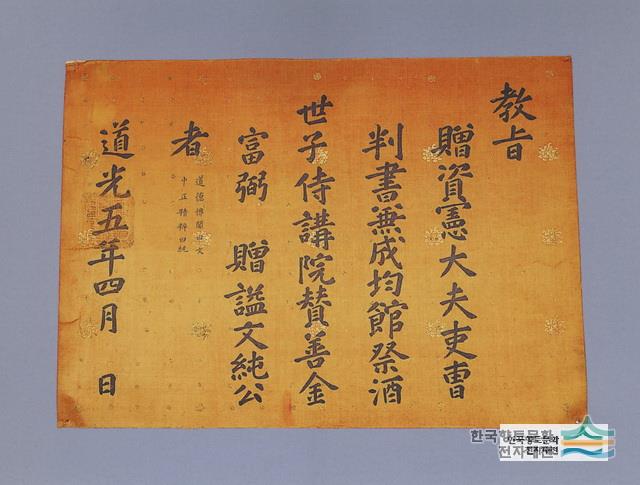 教旨
贈資憲大夫吏曹
判書兼成均館祭酒
世子侍講院贊善金
富弼 贈諡文純公
者
道德博聞曰文
中正精粹曰純
道光五年四月 日
한국향토문화
전자대전
한국향토문화
전자대전